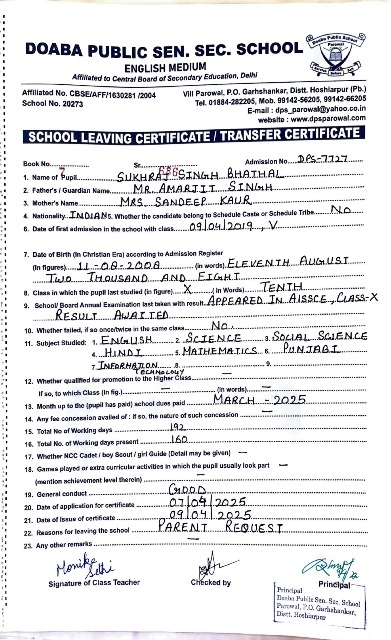 DOABA PUBLIC SEN. SEC. SCHOOL
ENGLISH MEDIUM
Affiliated to Central Board of Secondary Education, Delhi
Affiliated No. CBSE/AFF/1630281 /2004
School No. 20273
Vill Parowal, P.O. Garhshankar, Distt. Hoshiarpur (Pb.)
Tel. 01884-282205, Mob. 99142-56205, 99142-66205
E-mail : dps_parowal@yahoo.co.in
website : www.dpsparowal.com
SCHOOL LEAVING CERTIFICATE / TRANSFER CERTIFICATE
Book No. 7 Sr. 686 Admission No. DPS-7727
1. Name of Pupil SUKHRAJ SINGH BHATHAL
2. Father's / Guardian Name MR. AMARJIT SINGH
3. Mother's Name MRS. SANDEEP KAUR
4. Nationality INDIAN 5. Whether the candidate belong to Schedule Caste or Schedule Tribe No
6. Date of first admission in the school with class 09/04/2019, V
7. Date of Birth (In Christian Era) according to Admission Register
(In figures) 11-08-2008 (in words) ELEVENTH AUGUST
TWO THOUSAND AND EIGHT
8. Class in which the pupil last studied (in figure) X (In Words) TENTH
9. School/ Board Annual Examination last taken with result APPEARED IN AISSCE, CLASS-X
RESULT AWAITED
10. Whether failed, if so once/twice in the same class No.
11. Subject Studied : 1. ENGLISH 2. SCIENCE 3. SOCIAL SCIENCE
4. HINDI 5. MATHEMATICS 6. PUNJABI
7. INFORMATION TECHNOLOGY 8. 9.
12. Whether qualified for promotion to the Higher Class —
If so, to which Class (in fig.) — (in words) —
13. Month up to the (pupil has paid) school dues paid MARCH - 2025
14. Any fee concession availed of : If so, the nature of such concession —
15. Total No of Working days 192
16. Total No. of Working days present 160
17. Whether NCC Cadet / boy Scout / girl Guide (Detail may be given) —
18. Games played or extra curricular activities in which the pupil usually look part —
(mention achievement level therein)
19. General conduct GOOD
20. Date of application for certificate 07/04/2025
21. Date of issue of certificate 09/04/2025
22. Reasons for leaving the school PARENT REQUEST
23. Any other remarks —
Monika Sethi
Signature of Class Teacher Checked by Principal
Principal
Doaba Public Sen. Sec. School
Parowal, P.O. Garhshankar,
Distt. Hoshiarpur (Pb.)